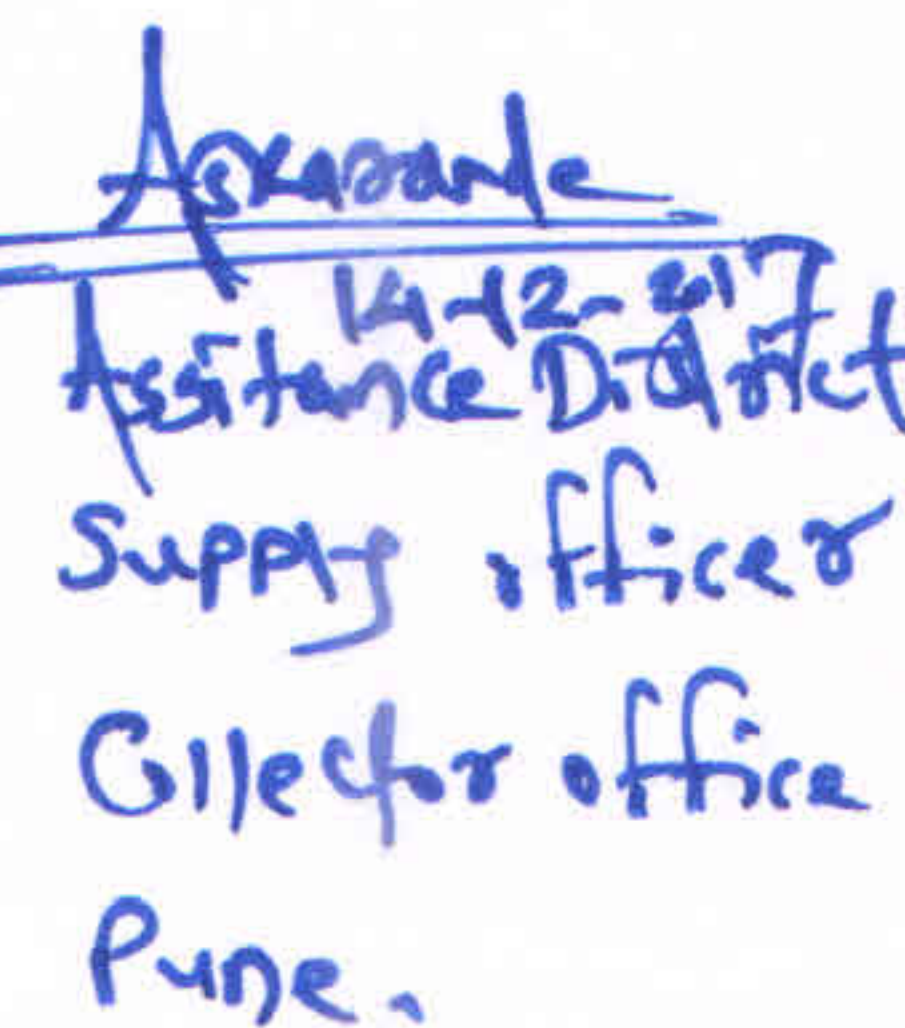 Askarande
14-12-217
Assitance District
Supply officer
Collector office
Pune.